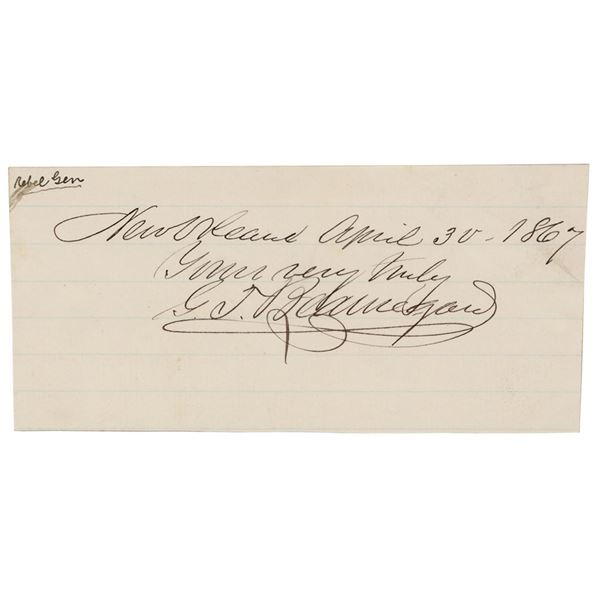 Rebel Gen
New Orleans April 30 - 1867
Yours very truly
G. T. Beauregard